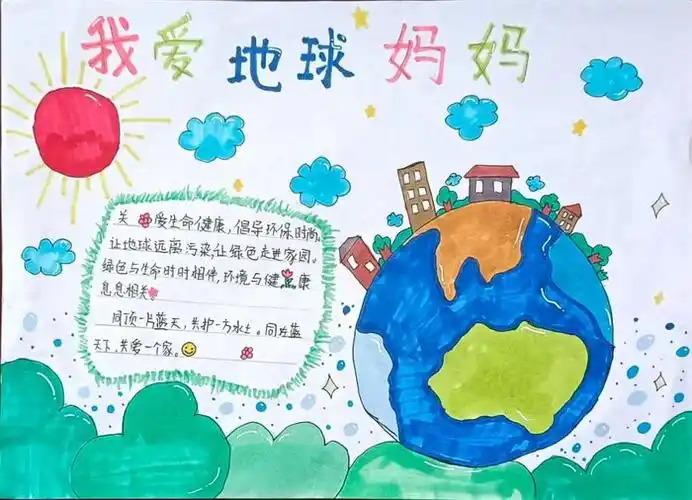 我爱地球妈妈
关爱生命健康,倡导环保时尚
让地球远离污染,让绿色走进家园。
绿色与生命时时相伴,环境与健康
息息相关
同顶一片蓝天,共护一方水土。同在蓝
天下,共爱一个家。